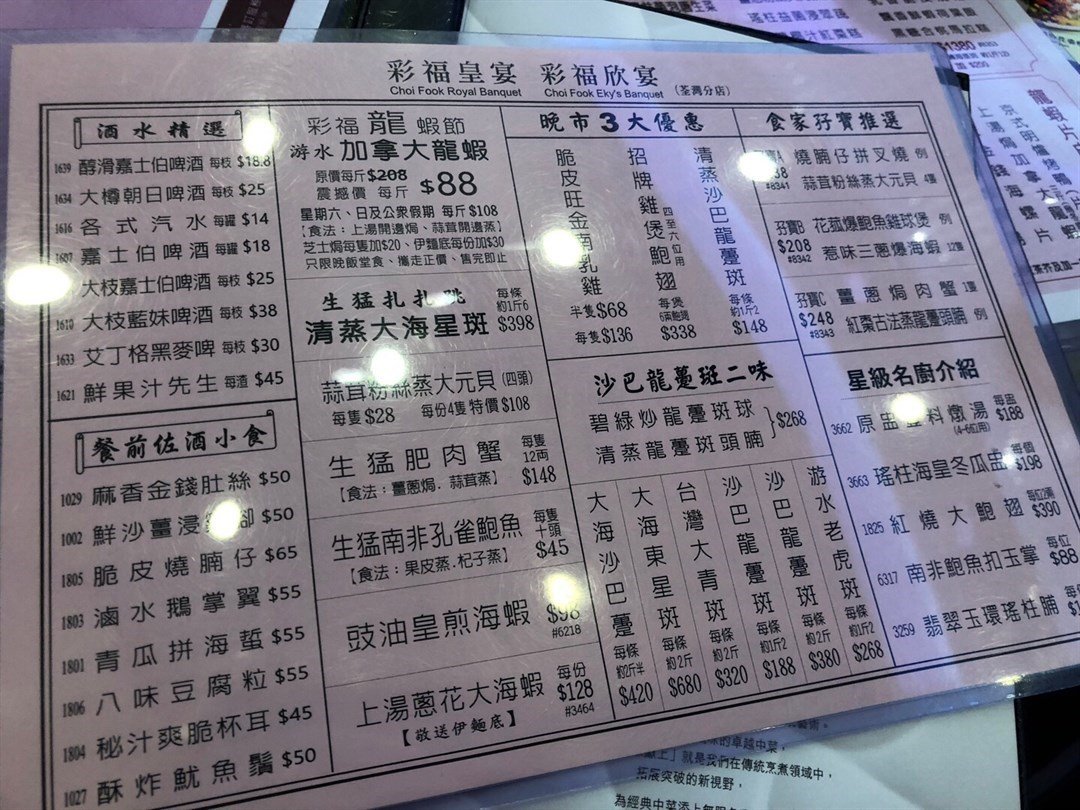 彩福皇宴 彩福欣宴
Choi Fook Royal Banquet Choi Fook Eky's Banquet (荃灣分店)
酒水精選
1639 醇滑嘉士伯啤酒 每枝 $18.8
1634 大樽朝日啤酒 每枝 $25
1616 各式汽水 每罐 $14
1607 嘉士伯啤酒 每罐 $18
大枝嘉士伯啤酒 每枝 $25
1610 大枝藍妹啤酒 每枝 $38
1633 艾丁格黑麥啤 每枝 $30
1621 鮮果汁先生 每渣 $45
餐前佐酒小食
1029 麻香金錢肚絲 $50
1002 鮮沙薑浸 腳 $50
1805 脆皮燒腩仔 $65
1803 滷水鵝掌翼 $55
1801 青瓜拼海蜇 $55
1806 八味豆腐粒 $55
1804 秘汁爽脆杯耳 $45
1027 酥炸魷魚鬚 $50
彩福龍蝦節
游水加拿大龍蝦
原價每斤$208
震撼價 每斤 $88
星期六、日及公眾假期 每斤 $108
【食法：上湯開邊焗、蒜茸開邊蒸】
芝士焗每隻加$20、伊麵底每份加$30
只限晚飯堂食、攜走正價、售完即止
生猛扎扎跳
清蒸大海星斑 每條 約1斤6 $398
蒜茸粉絲蒸大元貝 (四頭)
每隻 $28 每份4隻 特價 $108
生猛肥肉蟹 每隻 12両 $148
【食法：薑蔥焗．蒜茸蒸】
生猛南非孔雀鮑魚 每隻 十頭 $45
【食法：果皮蒸．杞子蒸】
豉油皇煎海蝦 $98
#6218
上湯蔥花大海蝦 每份 $128
#3464
【敬送伊麵底】
晚市3大優惠
脆皮旺金南乳雞
半隻 $68
每隻 $136
招牌雞煲翅 四至六位用
每煲 $338
清蒸沙巴龍躉斑
每條 約1斤2 $148
沙巴龍躉斑二味
碧綠炒龍躉斑球
清蒸龍躉斑頭腩
$268
大海沙巴躉 每條 約2斤半 $420
大海東星斑 每條 約2斤 $680
台灣大青斑 每條 約2斤 $320
沙巴龍躉斑 每條 約1斤2 $188
沙巴龍躉斑 每條 約2斤 $380
游水老虎斑 每條 約1斤2 $268
食家孖寶推選
孖寶A 燒腩仔拼叉燒 例
#8341 蒜茸粉絲蒸大元貝 4隻
孖寶B 花菰爆鮑魚雞球煲 例
$208
#8342 惹味三蔥爆海蝦 12隻
孖寶C 薑蔥焗肉蟹 1隻
$248
#8343 紅棗古法蒸龍躉頭腩 例
星級名廚介紹
3662 原盅 料燉湯 每盅 $188
(4-6位用)
3663 瑤柱海皇冬瓜盅 每個 $198
1825 紅燒大鮑翅 $390
6317 南非鮑魚扣玉掌 每位 $88
3259 翡翠玉環瑤柱脯
的卓越中菜，
」就是我們在傳統烹煮領域中，
拓展突破的新視野，